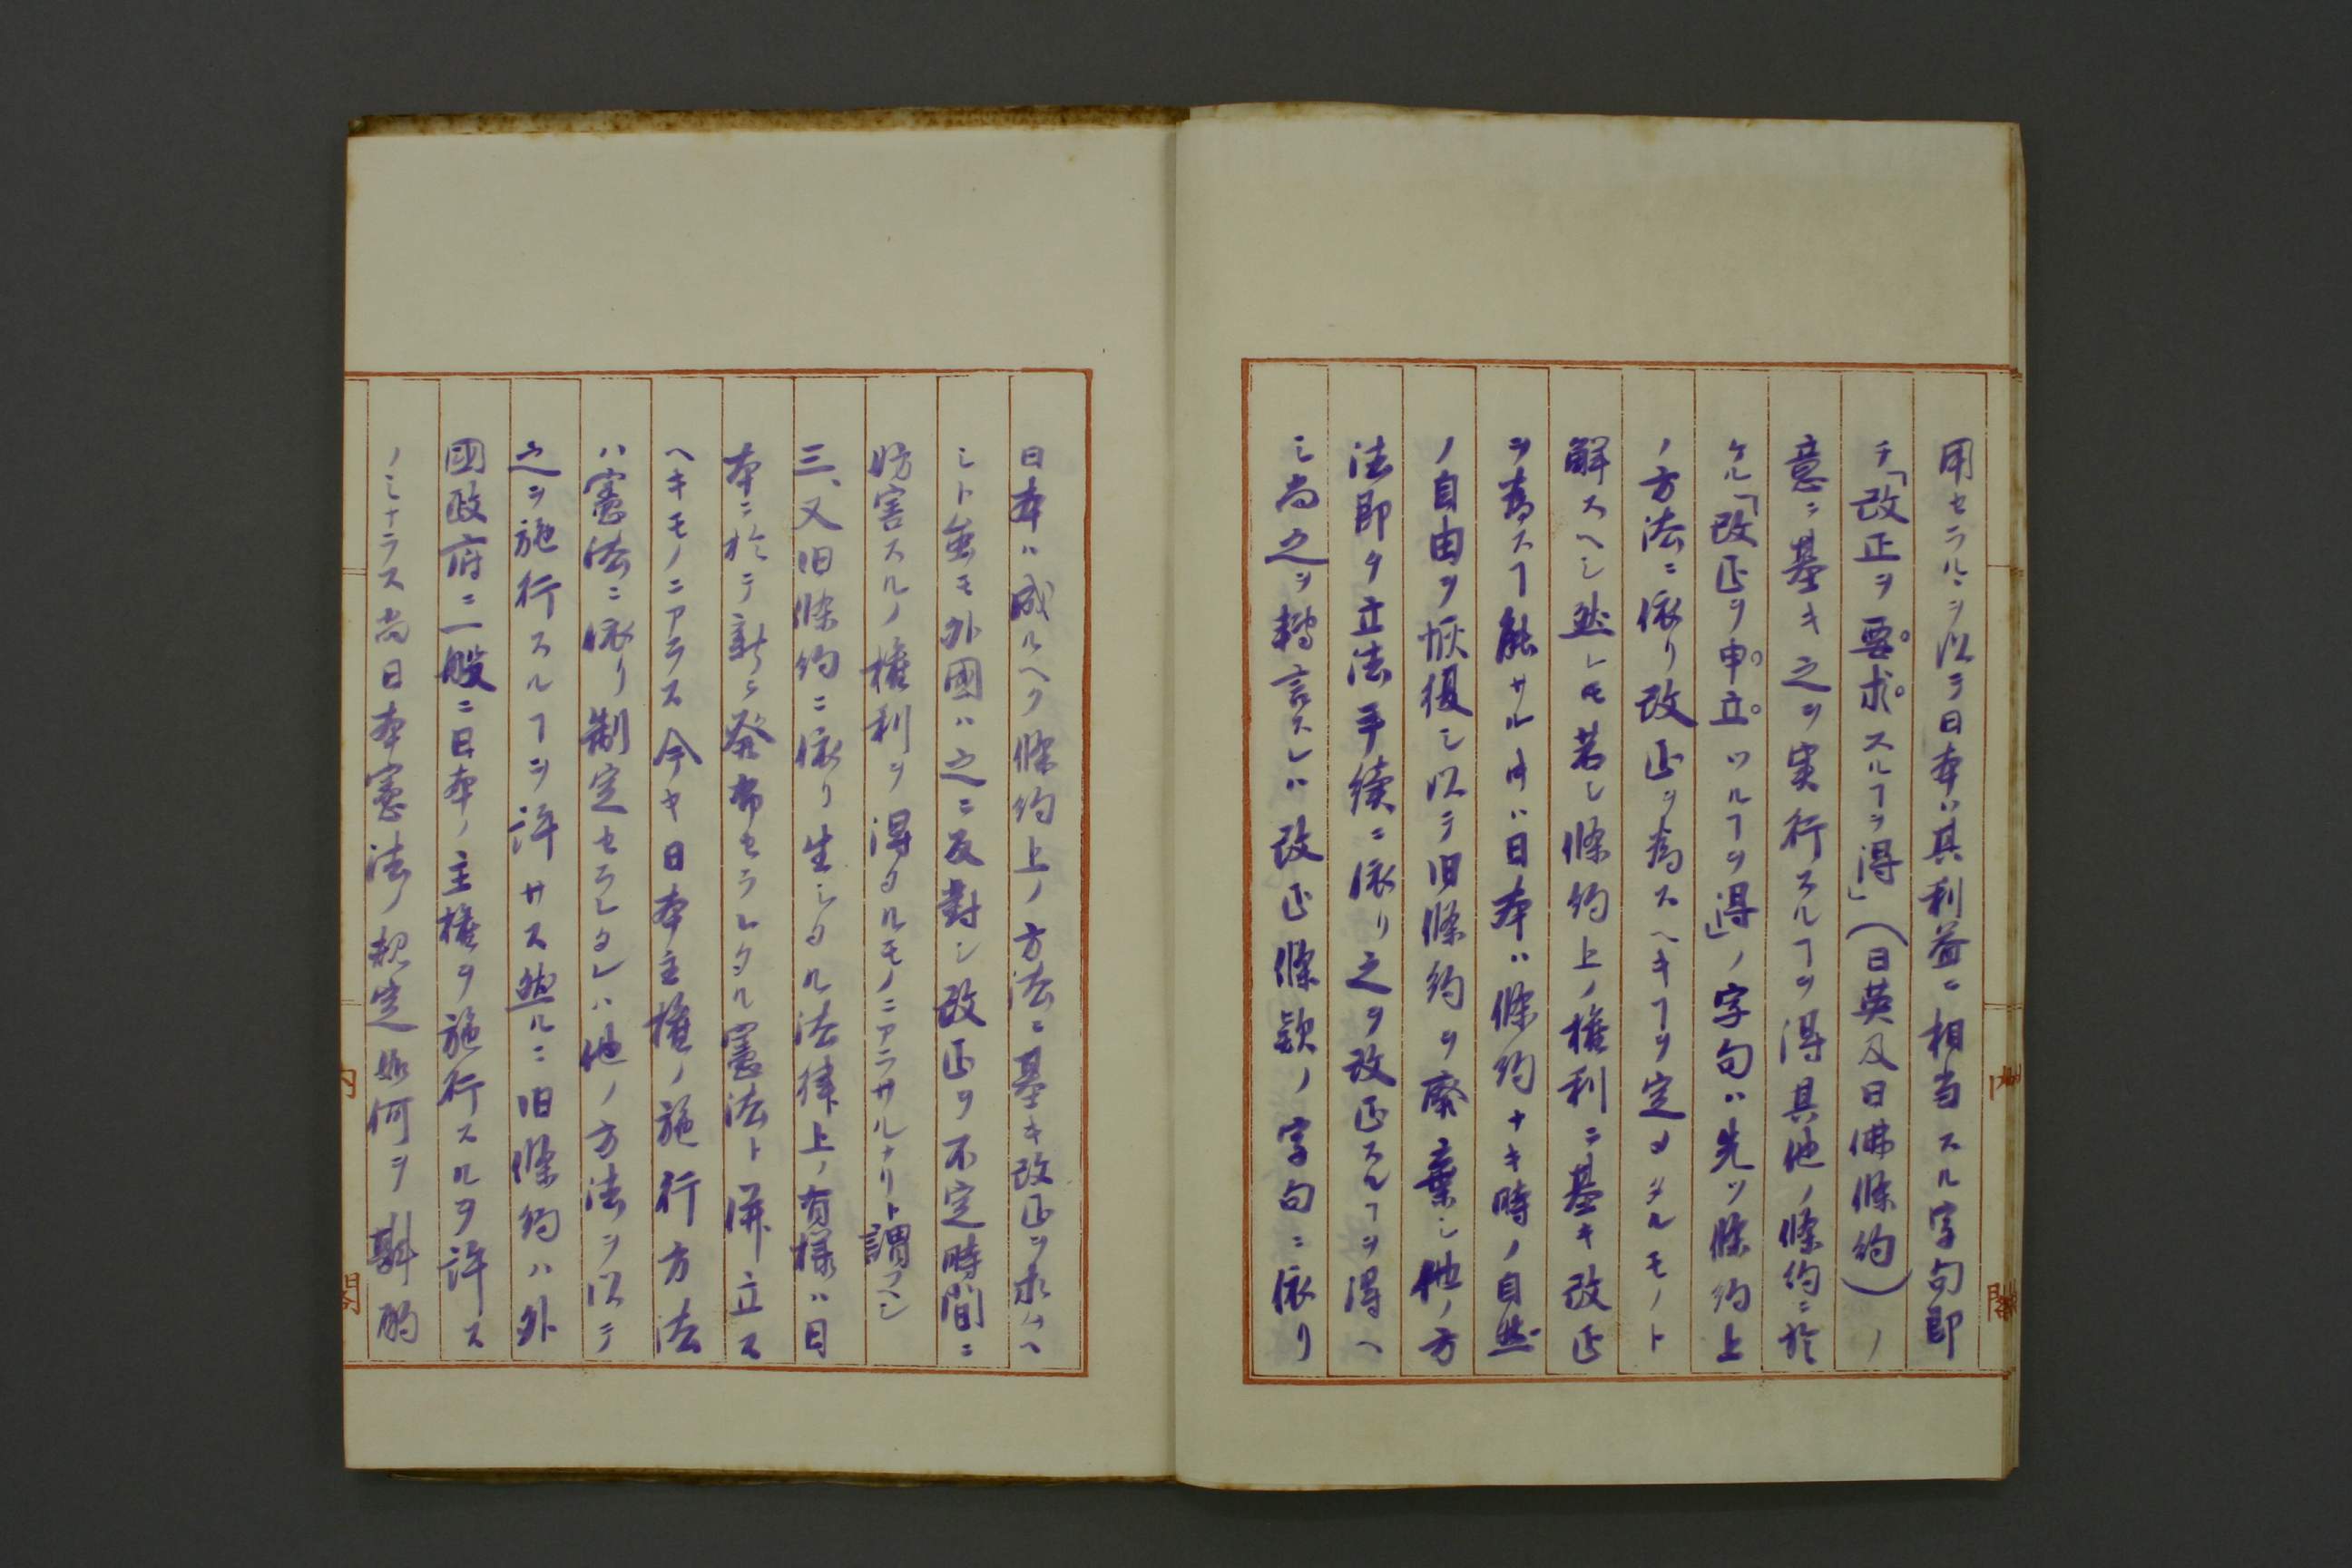 用セラルヽヲ以テ日本ハ其利益ニ相当スル字句即
チ「改正ヲ要求スルヿヲ得」(日英及日佛條約)ノ
意ニ基キ之ヲ実行スルヿヲ得其他ノ條約ニ於
ケル「改正ヲ申立ツルヿヲ得」ノ字句ハ先ツ條約上
ノ方法ニ依リ改正ヲ為スヘキヿヲ定メタルモノト
解スヘシ然レ𪜈若シ條約上ノ権利ニ基キ改正
ヲ為スヿ能サル時ハ日本ハ條約ナキ時ノ自然
ノ自由ヲ恢復シ以テ旧條約ヲ廃棄シ他ノ方
法即タ立法手續ニ依リ之ヲ改正スルヿヲ得ヘ
シ尚之ヲ轉言スレハ改正條款ノ字句ニ依リ
日本ハ成ルヘク條約上ノ方法ニ基キ改正ヲ求ムヘ
シト雖モ外國ハ之ニ反對シ改正ヲ不定時間ニ
妨害スルノ権利ヲ得タルモノニアラサルナリト謂フヘシ
三、又旧條約ニ依リ生シタル法律上ノ有様ハ日
本ニ於テ新ニ発布セラレタル憲法ト併立ス
ヘキモノニアラス今ヤ日本主権ノ施行方法
ハ憲法ニ依リ制定セラレタレハ他ノ方法ヲ以テ
之ヲ施行スルヿヲ許サス然ルニ旧條約ハ外
國政府ニ一般ニ日本ノ主権ヲ施行スルヲ許ス
ノミナラス尚日本憲法ノ規定如何ヲ斟酌
内閣